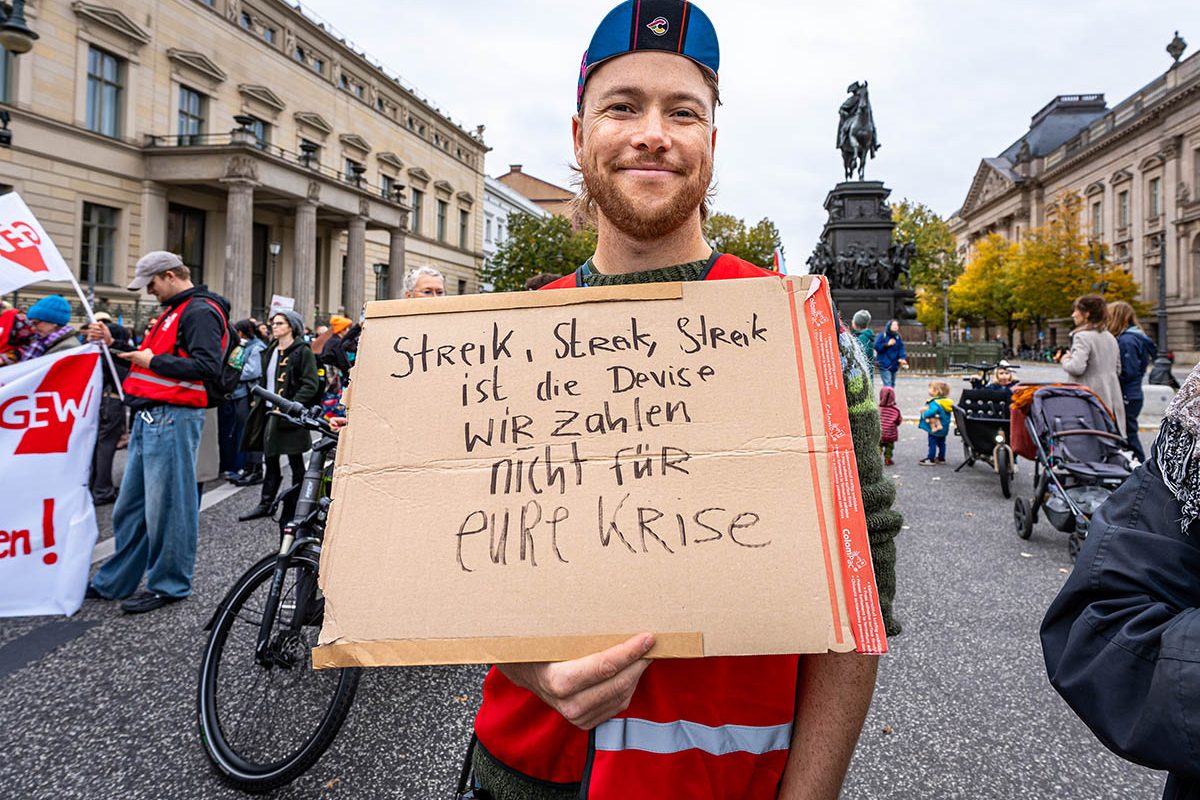 Streik, Streik, Streik
ist die Devise
wir zahlen
nicht für
eure Krise
GEW
GEW
en!
ColomPac
ColomPac